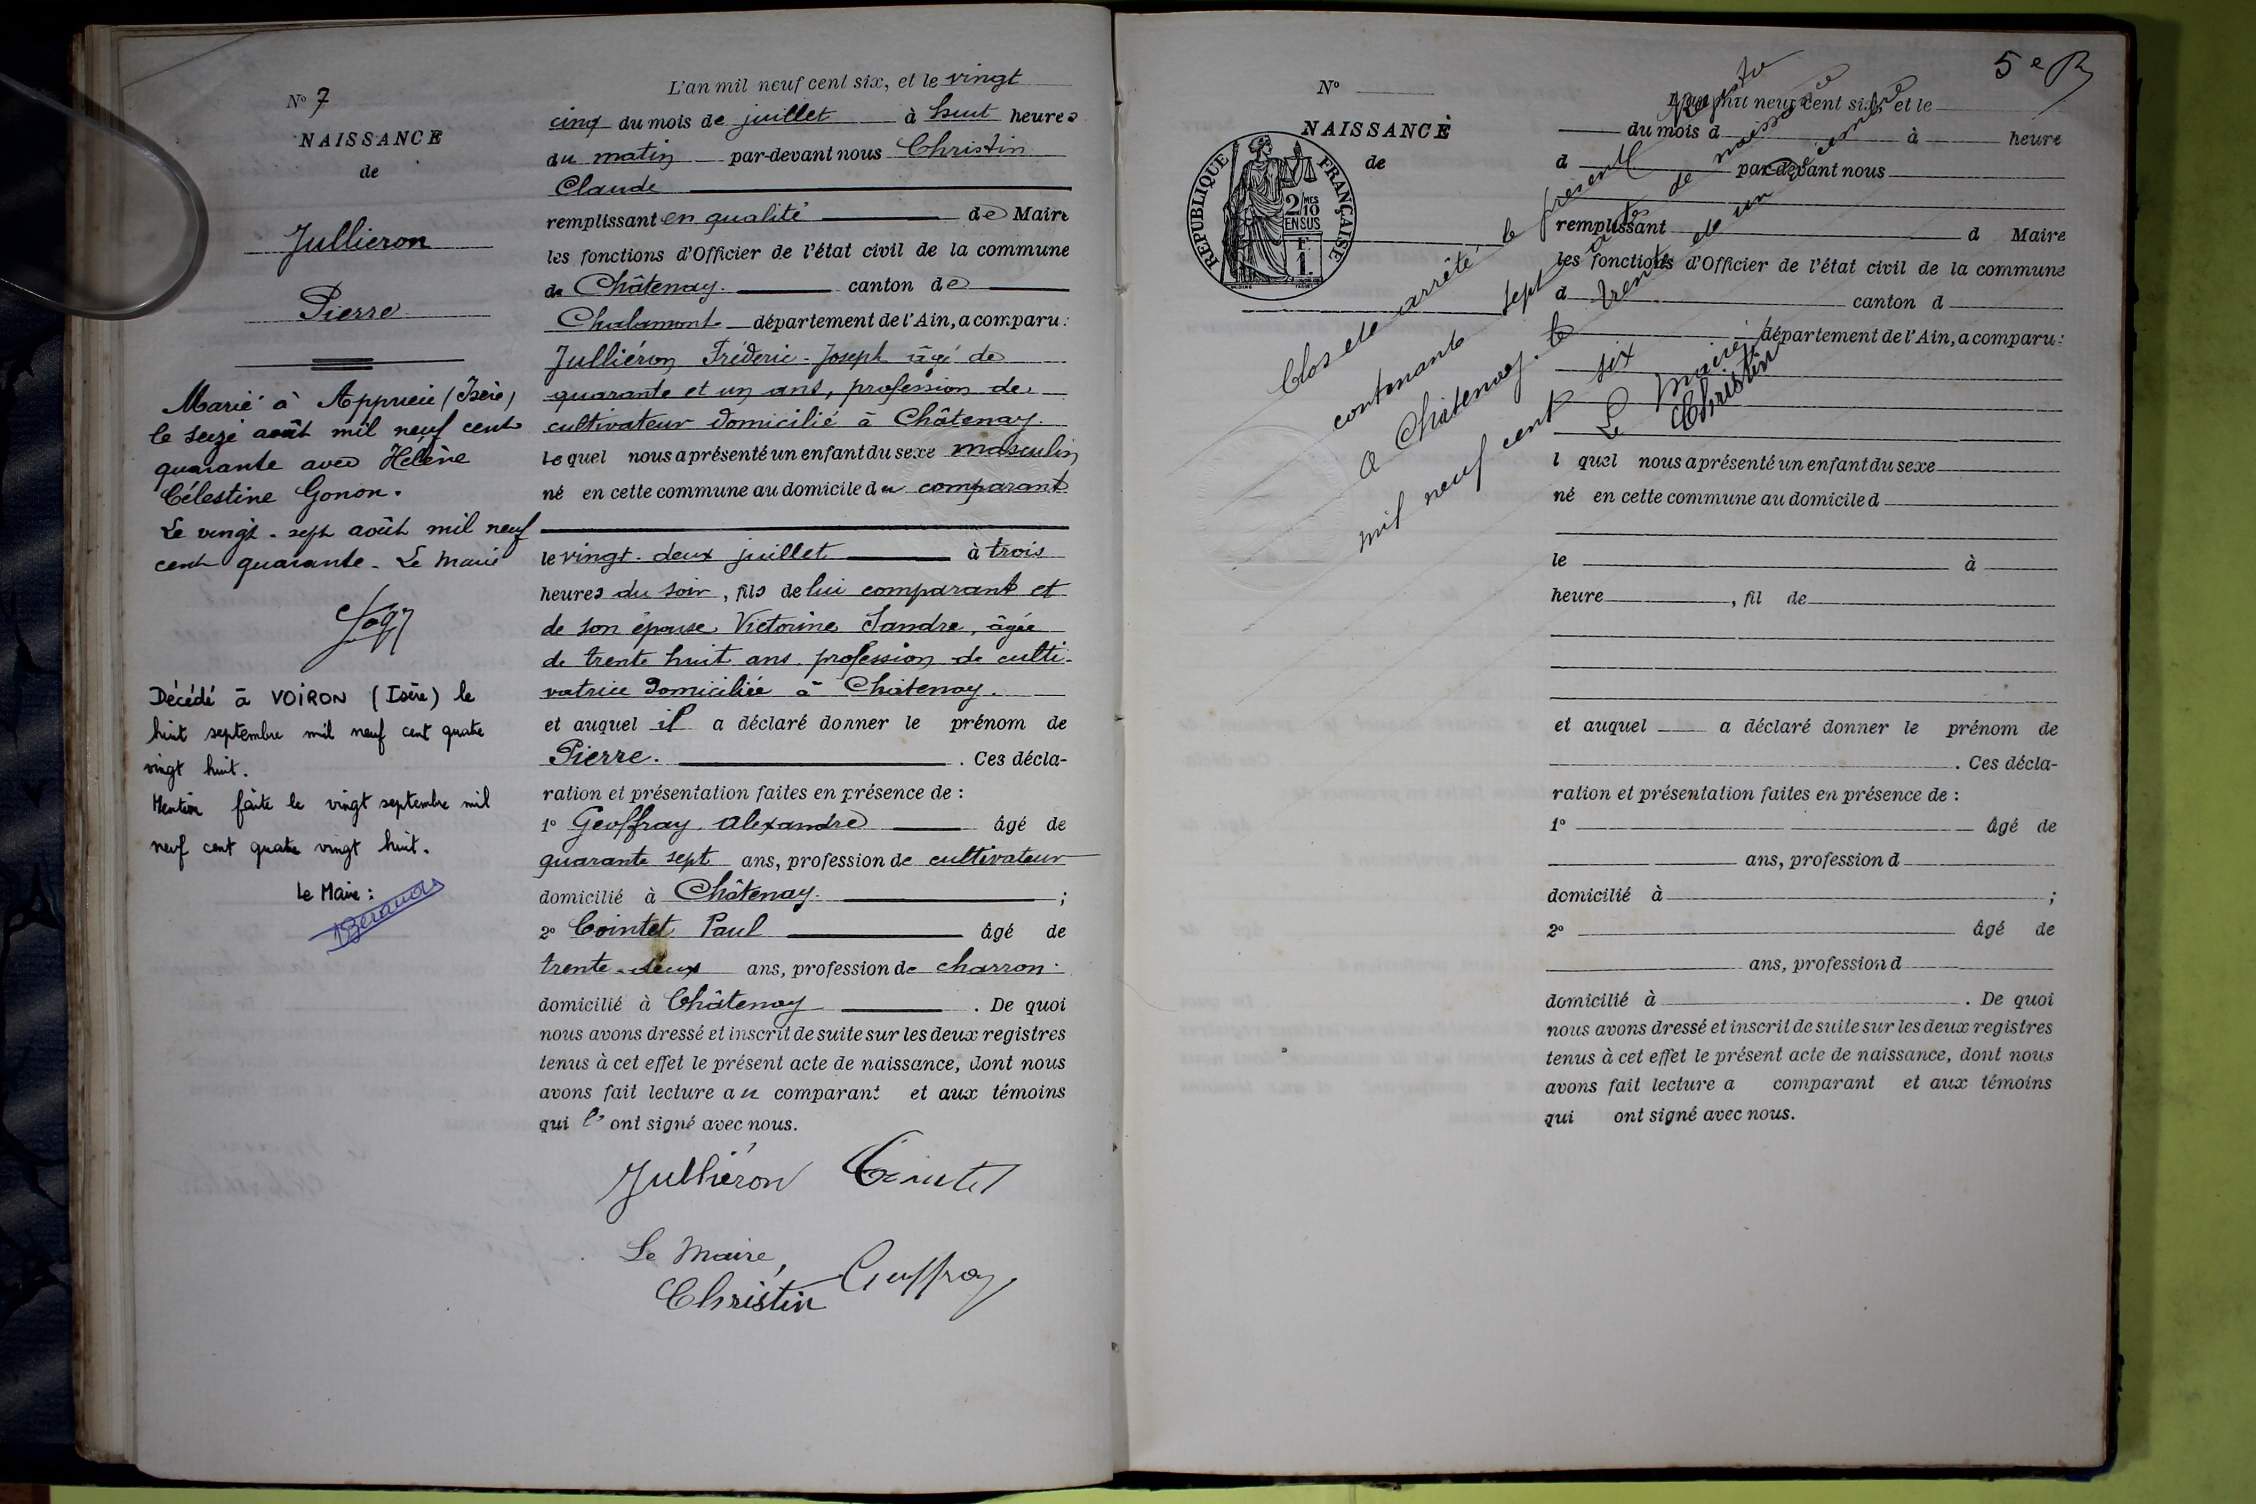 N° 7
NAISSANCE
de
Jullieron
Pierre
Marié à Apprieu (Isère)
le seize août mil neuf cent
quarante avec Hélène
Célestine Gonon.
Le vingt-sept août mil neuf
cent quarante - Le Maire
Décédé à VOIRON (Isère) le
huit septembre mil neuf cent quatre
vingt huit.
Mention faite le vingt septembre mil
neuf cent quatre vingt huit.
Le Maire :
L'an mil neuf cent six, et le vingt
cinq du mois de juillet à huit heures
du matin par-devant nous Christin
Claude
remplissant en qualité de Maire
les fonctions d'Officier de l'état civil de la commune
de Châtenay. canton de
Chalamont département de l'Ain, a comparu :
Julliéron Fréderic-Joseph âgé de
quarante et un ans, profession de
cultivateur domicilié à Châtenay.
lequel nous a présenté un enfant du sexe masculin
né en cette commune au domicile du comparant
le vingt-deux juillet à trois
heures du soir, fils de lui comparant et
de son épouse Victorine Sandre, âgée
de trente huit ans profession de culti-
vatrice domiciliée à Châtenay.
et auquel il a déclaré donner le prénom de
Pierre. . Ces décla-
ration et présentation faites en présence de :
1° Geoffray Alexandre âgé de
quarante sept ans, profession de cultivateur
domicilié à Châtenay. ;
2° Cointet Paul âgé de
trente-deux ans, profession de charron.
domicilié à Châtenay . De quoi
nous avons dressé et inscrit de suite sur les deux registres
tenus à cet effet le présent acte de naissance, dont nous
avons fait lecture au comparant et aux témoins
qui l' ont signé avec nous.
Julliéron Cointet
Le Maire,
Christin Geoffray
5e
N°
NAISSANCE
de
REPUBLIQUE FRANÇAISE
2/MES
10
EN SUS
1 F.
Clos et arrêté le présent Registre
contenant sept actes de naissance
à Châtenay le trente et un décembre
mil neuf cent six
Le Maire,
Christin
L'an mil neuf cent six, et le
du mois d à heure
d par-devant nous
remplissant d Maire
les fonctions d'Officier de l'état civil de la commune
d canton d
département de l'Ain, a comparu :
l quel nous a présenté un enfant du sexe
né en cette commune au domicile d
le à
heure , fil de
et auquel a déclaré donner le prénom de
. Ces décla-
ration et présentation faites en présence de :
1° âgé de
ans, profession d
domicilié à ;
2° âgé de
ans, profession d
domicilié à . De quoi
nous avons dressé et inscrit de suite sur les deux registres
tenus à cet effet le présent acte de naissance, dont nous
avons fait lecture a comparant et aux témoins
qui ont signé avec nous.